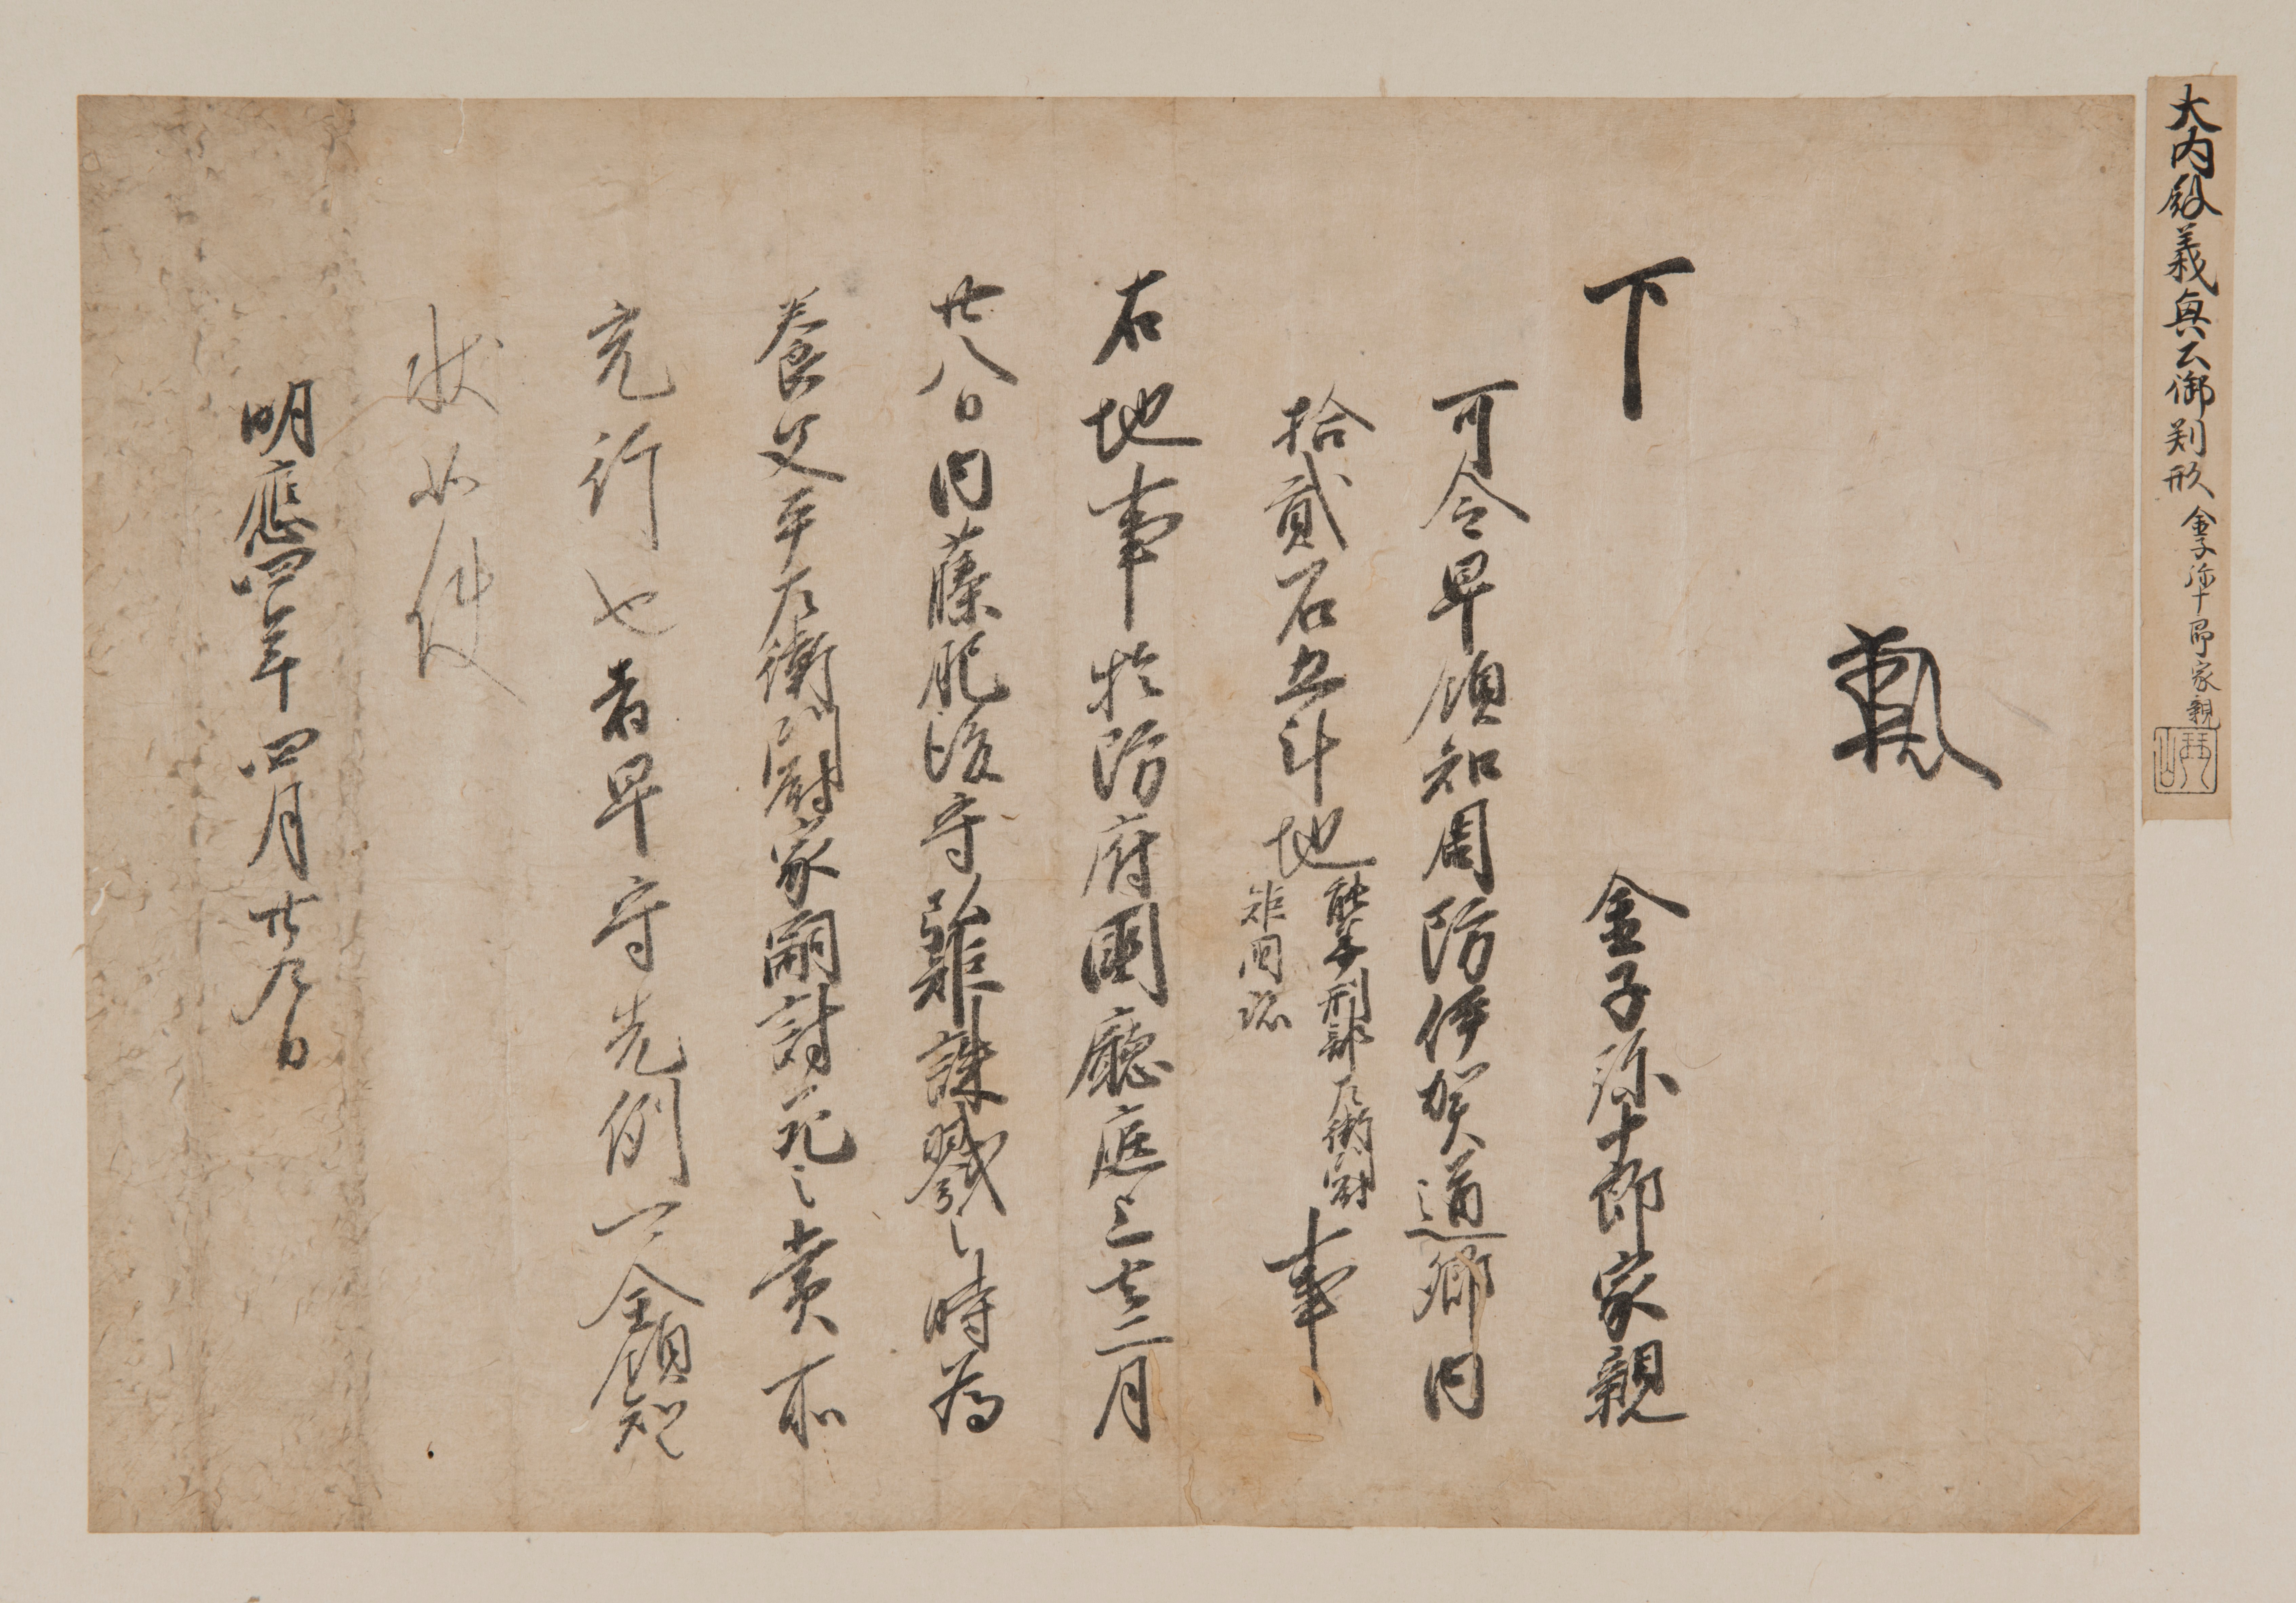 大内殿義興公御判形 金子弥十郎家親
下 金子弥十郎家親
可令早領知周防伊賀道郷内
拾貳石五斗地 事
右地事於防府國廳庭上去二月
廿八日内藤肥後守弘矩誅戮之時為
養父平左衛門尉家嗣討死之賞所
充行也者早守先例可全領知之
状如件
明應四年四月廿九日